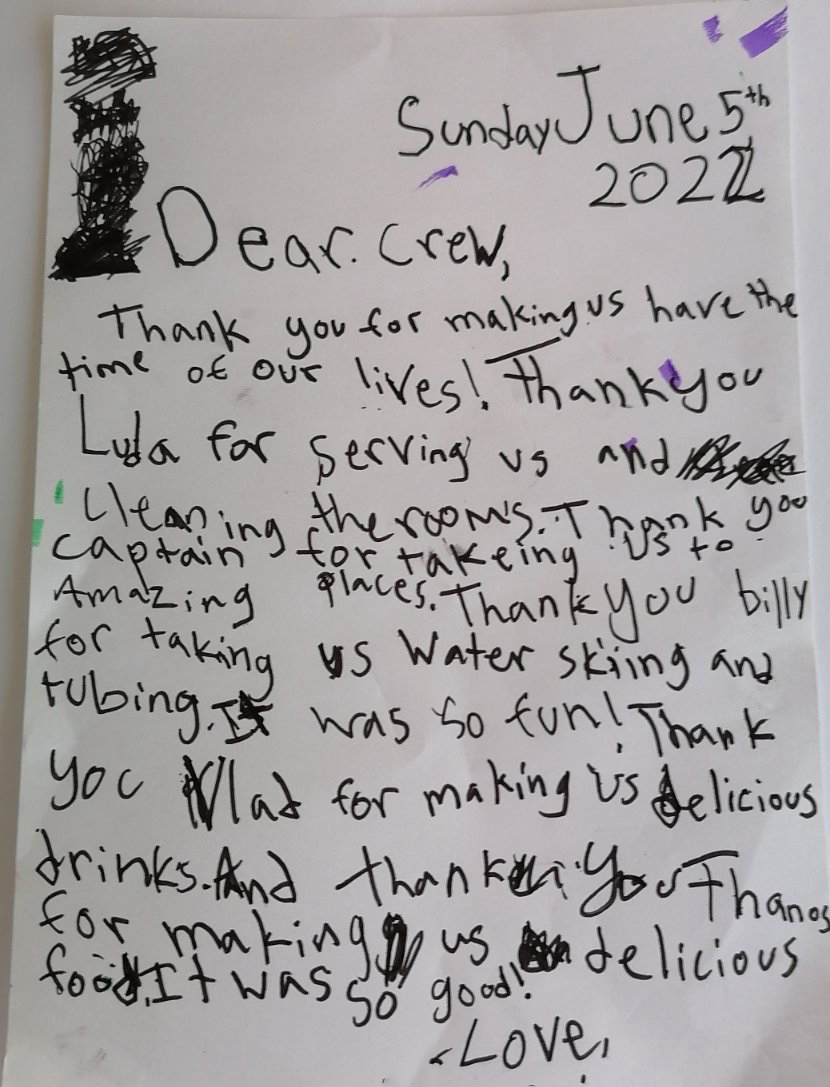 Sunday June 5th
2022
Dear. Crew,
Thank you for making us have the
time of our lives! Thank you
Luda for serving us and
Cleaning the rooms. Thank you
captain for takeing us to
Amazing places. Thank you billy
for taking us Water skiing and
tubing. It was so fun! Thank
you Vlad for making us delicious
drinks. And thank you Thanos
for making us delicious
food. It was so good!
-Love,